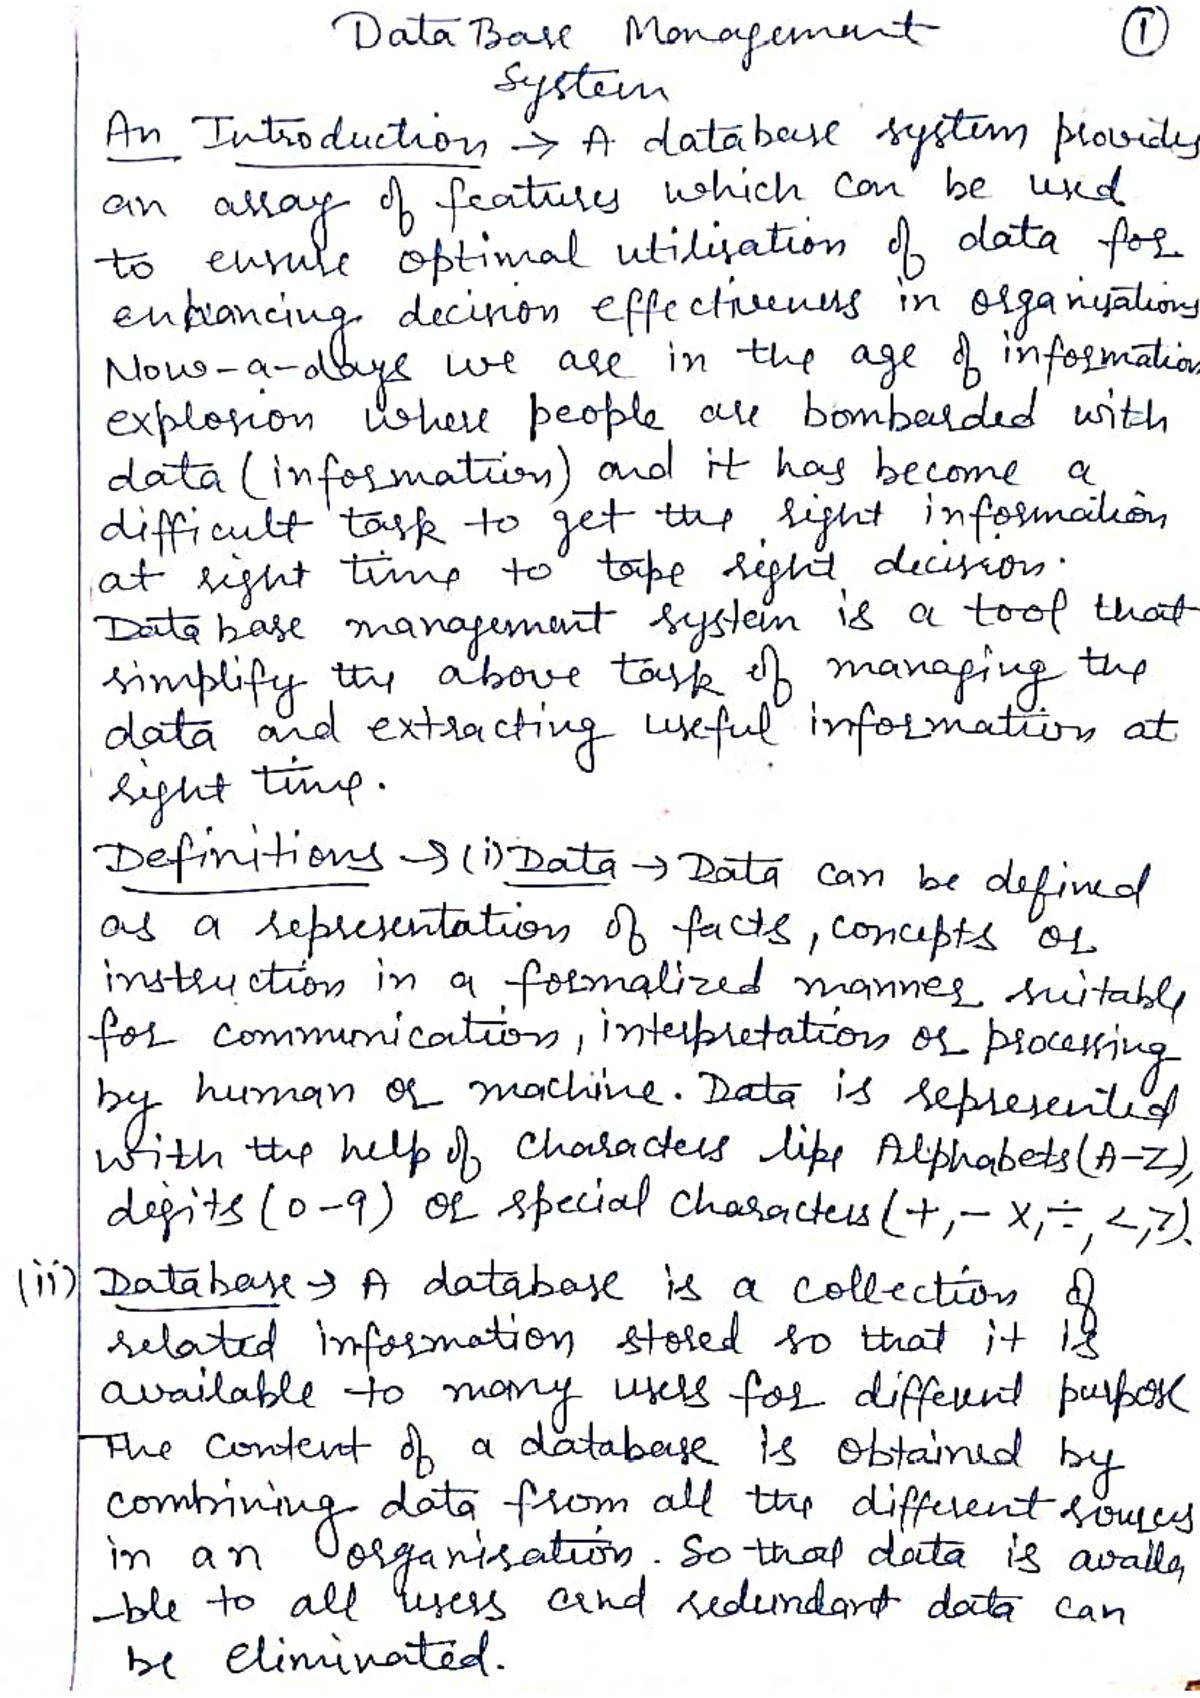 Data Base Management ①
System
An Introduction → A database system provides
an array of features which can be used
to ensure optimal utilisation of data for
enhancing decision effectiveness in organisations
Now-a-days we are in the age of information
explosion where people are bombarded with
data (information) and it has become a
difficult task to get the right information
at right time to take right decision.
Data base management system is a tool that
simplify the above task of managing the
data and extracting useful information at
right time.
Definitions → (i) Data → Data can be defined
as a representation of facts, concepts or
instruction in a formalized manner suitable
for communication, interpretation or processing
by human or machine. Data is represented
with the help of characters like Alphabets (A-Z),
digits (0-9) or special characters (+, - x, ÷, <, >).
(ii) Database → A database is a collection of
related information stored so that it is
available to many users for different purpose
The content of a database is obtained by
combining data from all the different sources
in an organisation. So that data is availa
-ble to all users and redundant data can
be eliminated.